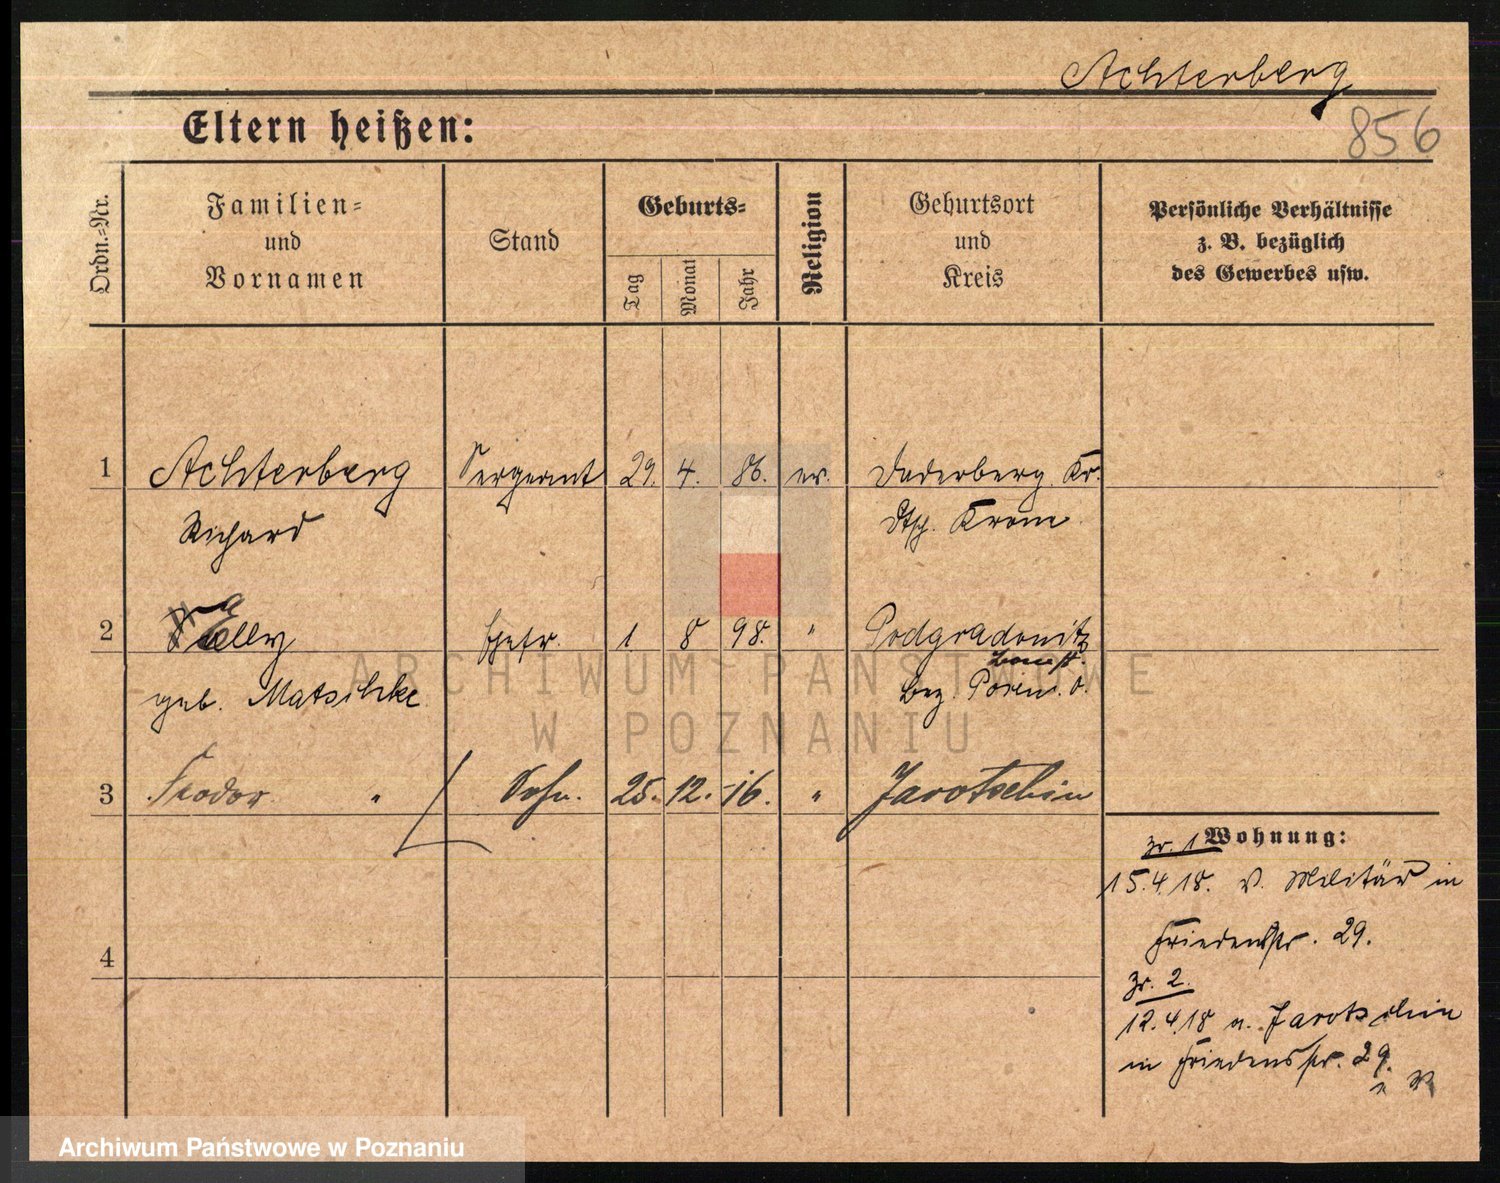 Achterberg
856
Eltern heißen:
Ordn.-Nr.
Familien- und Vornamen
Stand
Geburts-
Tag
Monat
Jahr
Religion
Geburtsort und Kreis
Persönliche Verhältnisse z. B. bezüglich des Gewerbes usw.
1 Achterberg Sergeant 29. 4. 86. ev. Kr.
Richard Dtsch. Krone
2 Elly Ehefr. 1 8 98. " Podgradowitz
geb. Matschke Bez. Posen.
3 " Sohn. 25. 12. 16. " Jarotschin
Wohnung:
Zr. 1
15.4.18. v. Militär in
Friedenstr. 29.
4
Zr. 2.
12.4.18 v. Jarotschin
in Friedenstr. 29.
ARCHIWUM PAŃSTWOWE
W POZNANIU
Archiwum Państwowe w Poznaniu